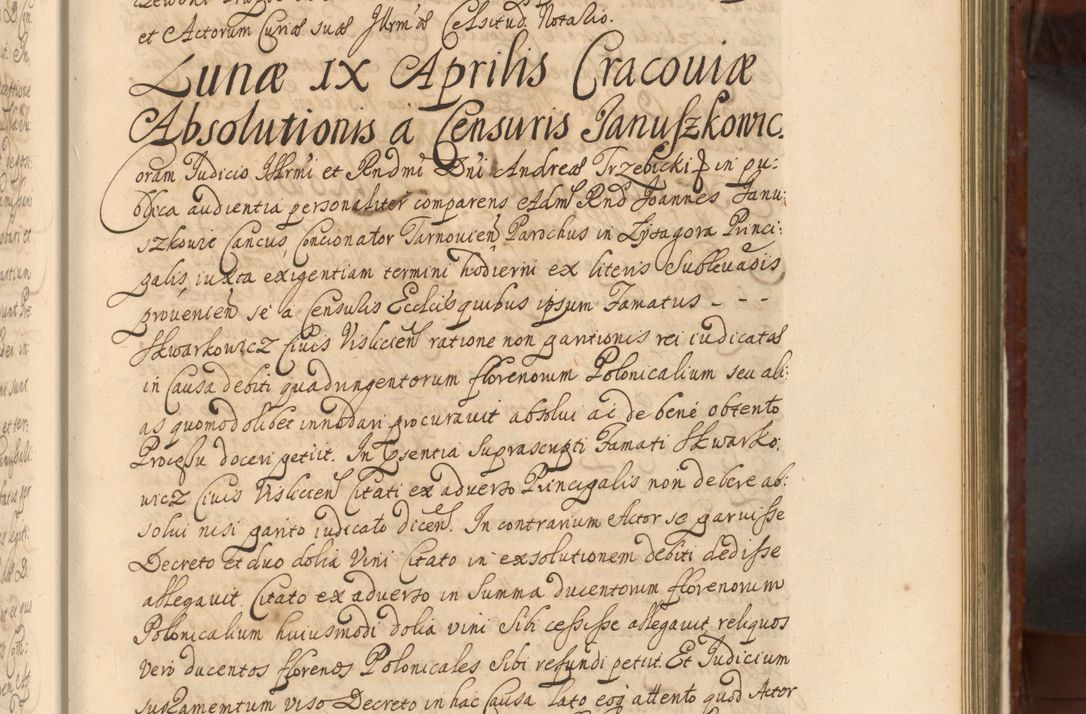 et Actorum Curiæ suæ Illrmæ Celsitud. Notalio.
Lunæ IX Aprilis Cracoviæ
Absolutionis a Censuris Januszkowic.
Coram Judicio Illrmi et Rndmi Dni Andreæ Trzebicki in pu:
blica audientia personaliter comparens Adm Rnd Joannes Janu:
szkowic Cancus Concionator Tarnovien Parochus in Lysagora Princi:
palis iuxta exigentiam termini hodierni ex literis Sublevaois
provenien se a Censuris Ecclis quibus ipsum Famatus - - -
Skwarkowicz Civis Vislicien ratione non paritionis rei iudicatæ
in Causa debiti quadringentorum florenorum Polonicalium seu ali:
as quomodolibet innodari procuravit absolvi ac de bene obtento
Processu doceri petiit. In Psentia Suprascripti Famati Skwarko:
wicz Civis Vislicien Citati ex adverso Principalis non debere ab:
solvi nisi parito iudicato dicen. In contrarium Actor se paruisse
Decreto et duo dolia Vini Citato in exsolutionem debiti dedisse
allegavit. Citato ex adverso in Summa ducentorum florenorum
Polonicalium huiusmodi dolia vini Sibi cessisse allegavit reliquos
vero ducentos florenos Polonicales Sibi refundi petiit. Et Judicium
iuxamentum viso Decreto in hac Causa lato eoq attento quod Actor